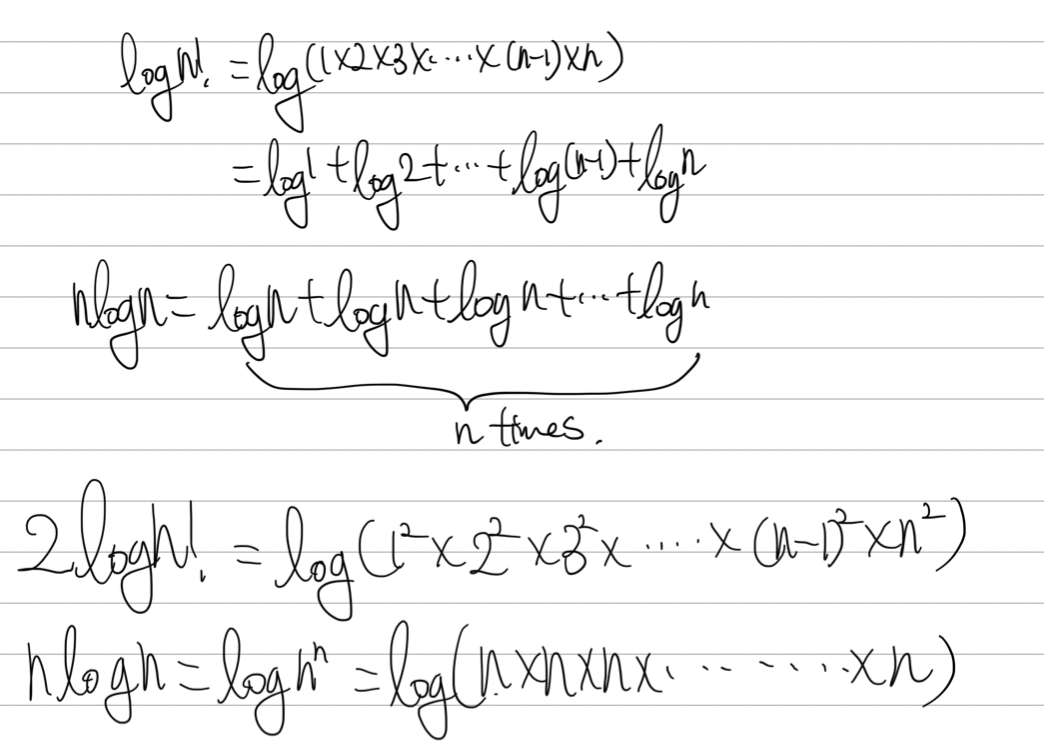 log n! = log(1×2×3×⋯×(n-1)×n)
= log 1 + log 2 + ⋯ + log(n-1) + log n
n log n = log n + log n + log n + ⋯ + log n
n times.
2 log n! = log(1²×2²×3²×⋯×(n-1)²×n²)
n log n = log nⁿ = log(n×n×n×⋯×n)